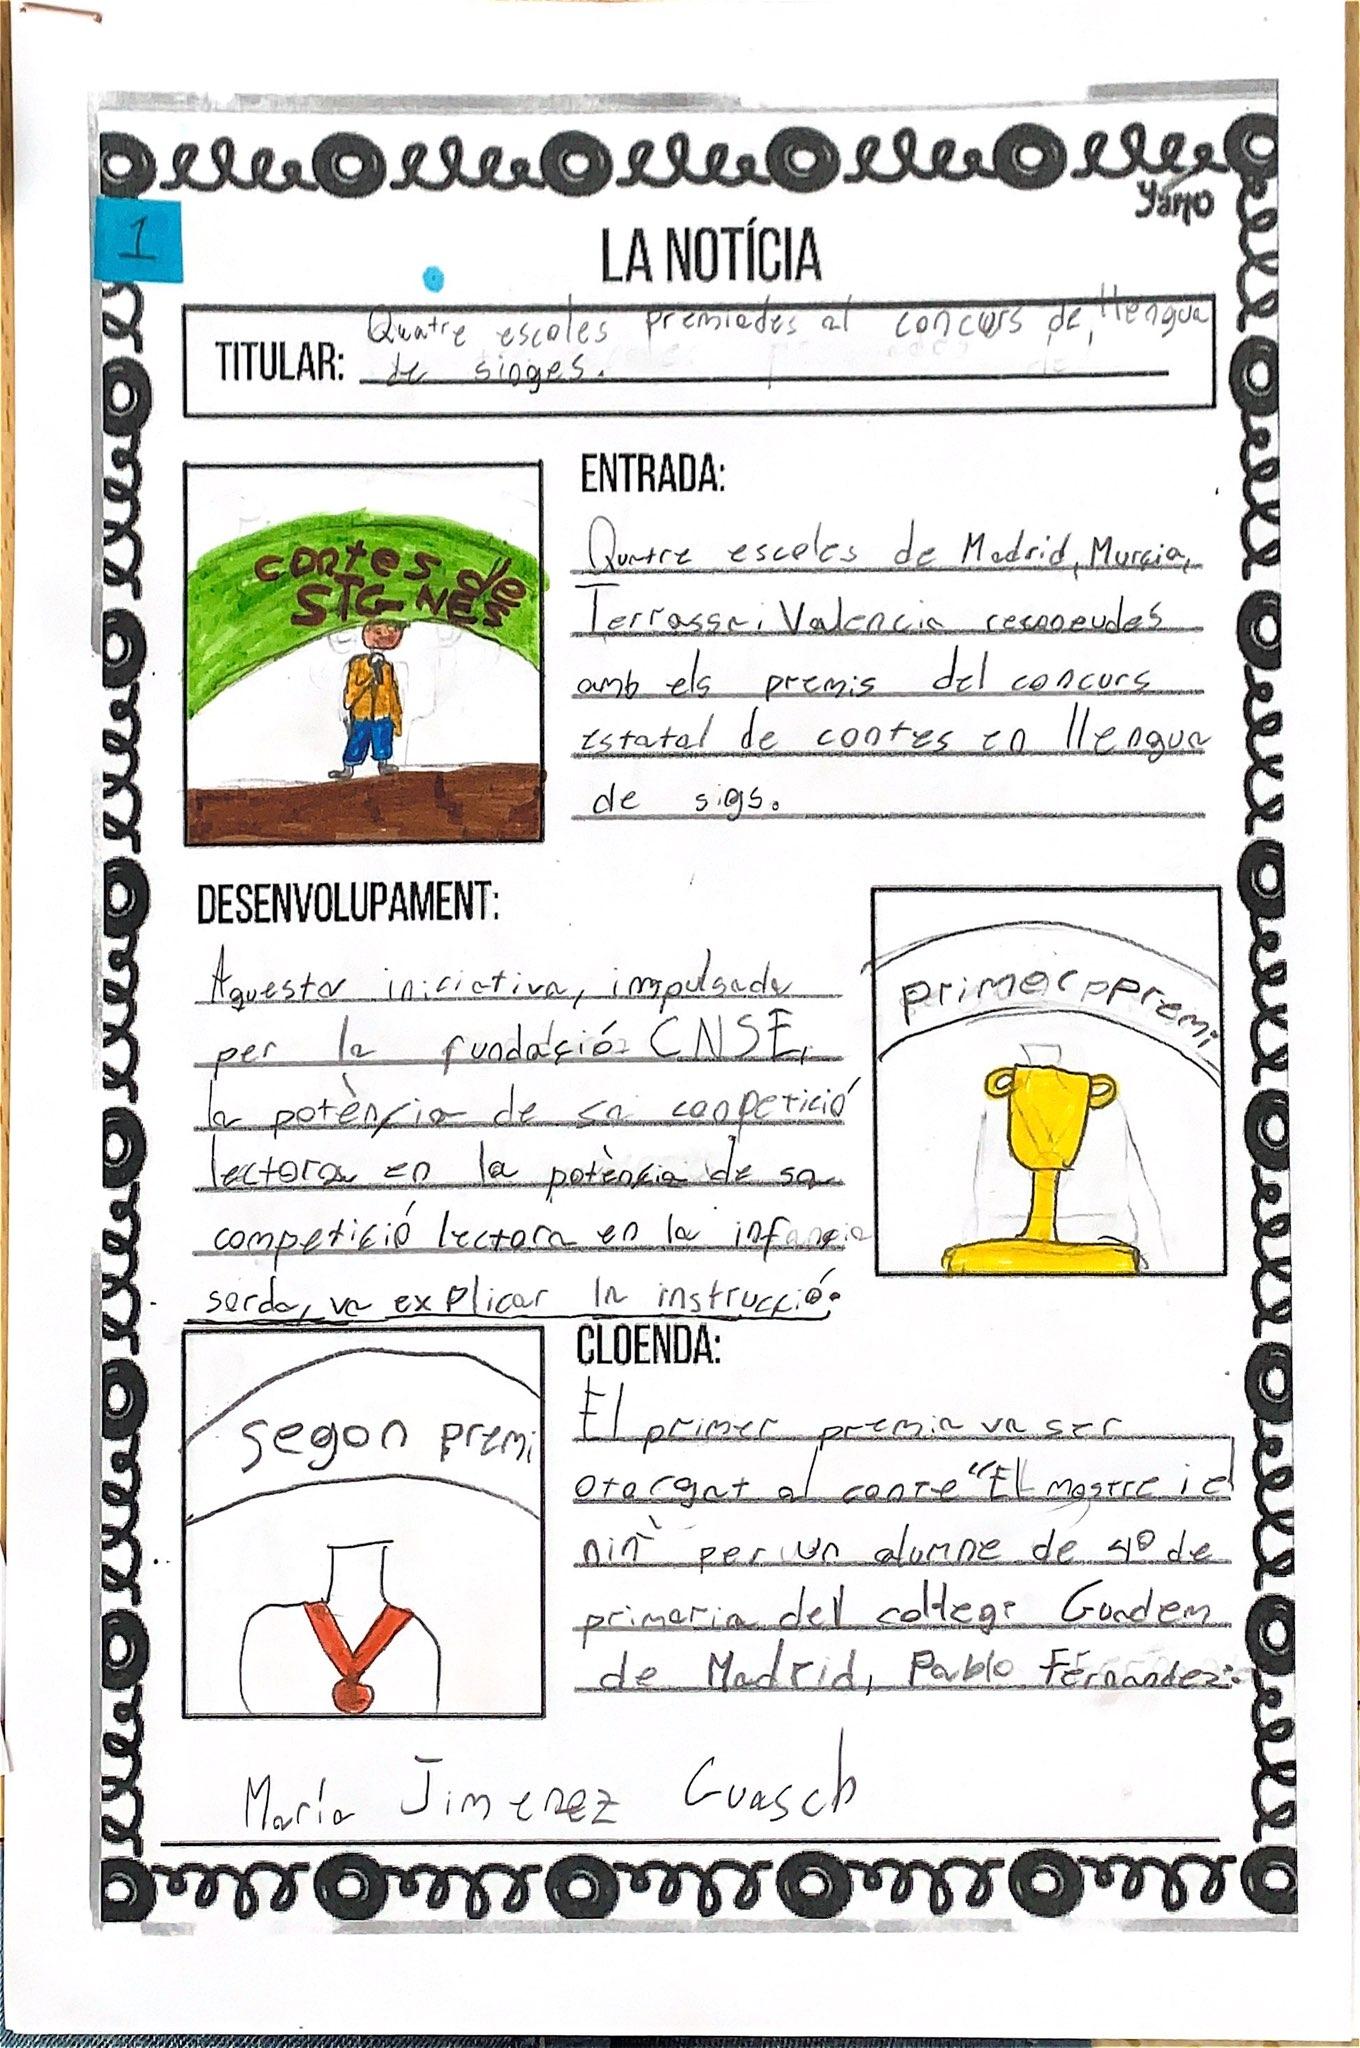 yarjo
1
LA NOTÍCIA
Quatre escoles premiades al concurs de llengua
TITULAR: de singes.
ENTRADA:
contes de
SIGNES
Quatre escoles de Madrid, Murcia,
Terrassa i Valencia reconeudes
amb els premis del concurs
estatal de contes en llengua
de sigs.
DESENVOLUPAMENT:
Aquesta iniciativa, impulsada
per la fundació CNSE,
la potència de sa conpetició
lectora en la potència de sa
competició lectora en la infancia
sorda, va explicar la instrucció.
primer ppremi
segon premi
CLOENDA:
El primer premia va ser
otorgat al conte "El mostre i el
nin" per un alumne de 4º de
primaria del collegi Gaudem
de Madrid, Pablo Fernandez.
María Jimenez Guasch